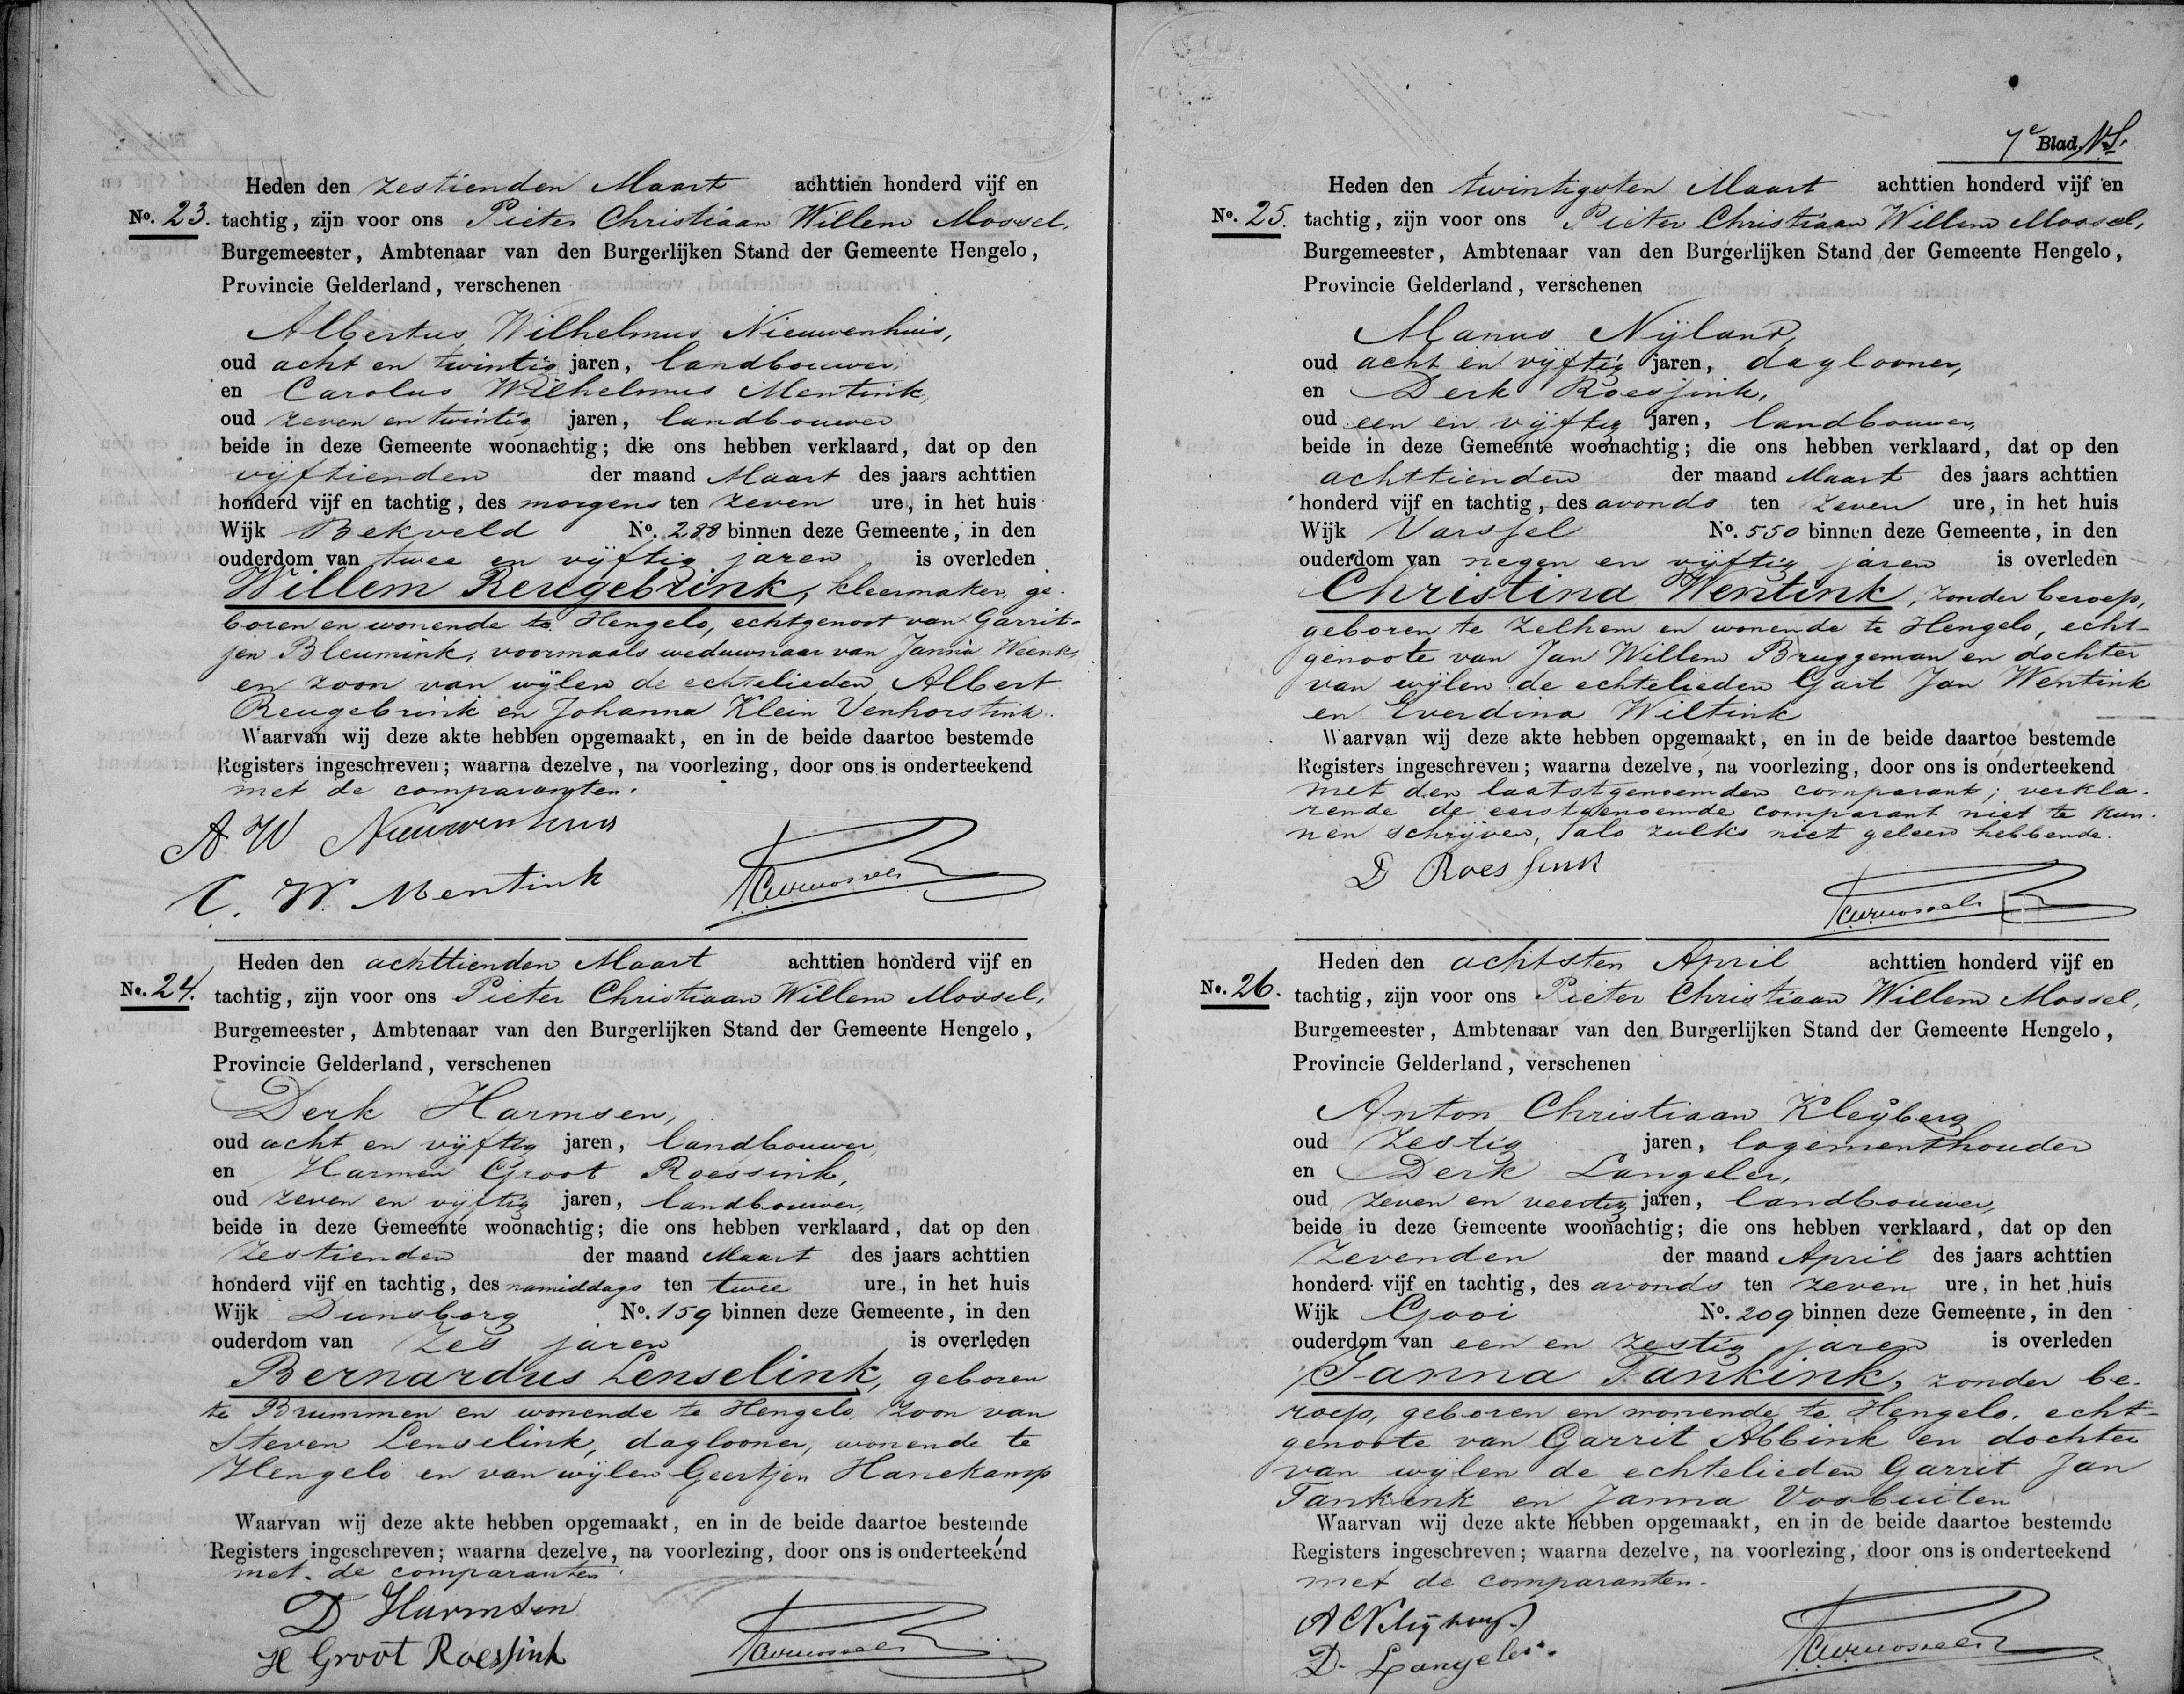 Heden den zestienden Maart achttien honderd vijf en
No. 23. tachtig, zijn voor ons Pieter Christiaan Willem Mossel,
Burgemeester, Ambtenaar van den Burgerlijken Stand der Gemeente Hengelo,
Provincie Gelderland, verschenen
Albertus Wilhelmus Nieuwenhuis,
oud acht en twintig jaren, landbouwer,
en Carolus Wilhelmus Mentink,
oud zeven en twintig jaren, landbouwer
beide in deze Gemeente woonachtig; die ons hebben verklaard, dat op den
vijftienden der maand Maart des jaars achttien
honderd vijf en tachtig, des morgens ten zeven ure, in het huis
Wijk Bekveld No. 288 binnen deze Gemeente, in den
ouderdom van twee en vijftig jaren is overleden
Willem Reugebrink, kleermaker, ge-
boren en wonende te Hengelo, echtgenoot van Garrit-
jen Bleumink, voormaals weduwnaar van Janna Weenk,
en zoon van wijlen de echtelieden Albert
Reugebrink en Johanna Klein Venhorstink.
Waarvan wij deze akte hebben opgemaakt, en in de beide daartoe bestemde
Registers ingeschreven; waarna dezelve, na voorlezing, door ons is onderteekend
met de comparanten.
A W Nieuwenhuis
C. W. Mentink
PCWMossel
Heden den achttienden Maart achttien honderd vijf en
No. 24. tachtig, zijn voor ons Pieter Christiaan Willem Mossel,
Burgemeester, Ambtenaar van den Burgerlijken Stand der Gemeente Hengelo,
Provincie Gelderland, verschenen
Derk Harmsen,
oud acht en vijftig jaren, landbouwer,
en Harmen Groot Roessink,
oud zeven en vijftig jaren, landbouwer,
beide in deze Gemeente woonachtig; die ons hebben verklaard, dat op den
zestienden der maand Maart des jaars achttien
honderd vijf en tachtig, des namiddags ten twee ure, in het huis
Wijk Dunsborg No. 159 binnen deze Gemeente, in den
ouderdom van zes jaren is overleden
Bernardus Lenselink, geboren
te Brummen en wonende te Hengelo, zoon van
Steven Lenselink, daglooner, wonende te
Hengelo en van wijlen Geertjen Hanekamp
Waarvan wij deze akte hebben opgemaakt, en in de beide daartoe bestemde
Registers ingeschreven; waarna dezelve, na voorlezing, door ons is onderteekend
met de comparanten.
D Harmsen
H Groot Roessink
PCWMossel
7e Blad
Heden den twintigsten Maart achttien honderd vijf en
No. 25. tachtig, zijn voor ons Pieter Christiaan Willem Mossel,
Burgemeester, Ambtenaar van den Burgerlijken Stand der Gemeente Hengelo,
Provincie Gelderland, verschenen
Manus Nijland,
oud acht en vijftig jaren, daglooner,
en Derk Roessink,
oud een en vijftig jaren, landbouwer,
beide in deze Gemeente woonachtig; die ons hebben verklaard, dat op den
achttienden der maand Maart des jaars achttien
honderd vijf en tachtig, des avonds ten zeven ure, in het huis
Wijk Varssel No. 550 binnen deze Gemeente, in den
ouderdom van negen en vijftig jaren is overleden
Christina Wentink, zonder beroep,
geboren te Zelhem en wonende te Hengelo, echt-
genoote van Jan Willem Bruggeman en dochter
van wijlen de echtelieden Gart Jan Wentink
en Everdina Wiltink
Waarvan wij deze akte hebben opgemaakt, en in de beide daartoe bestemde
Registers ingeschreven; waarna dezelve, na voorlezing, door ons is onderteekend
met den laatstgenoemden comparant; verkla-
rende de eerstgenoemde comparant niet te kun-
nen schrijven, als zulks niet geleerd hebbende.
D Roessink
PCWMossel
Heden den achtsten April achttien honderd vijf en
No. 26. tachtig, zijn voor ons Pieter Christiaan Willem Mossel,
Burgemeester, Ambtenaar van den Burgerlijken Stand der Gemeente Hengelo,
Provincie Gelderland, verschenen
Anton Christiaan Kleijberg
oud zestig jaren, logementhouder
en Derk Langeler,
oud zeven en veertig jaren, landbouwer,
beide in deze Gemeente woonachtig; die ons hebben verklaard, dat op den
zevenden der maand April des jaars achttien
honderd vijf en tachtig, des avonds ten zeven ure, in het huis
Wijk Gooi No. 209 binnen deze Gemeente, in den
ouderdom van een en zestig jaren is overleden
Janna Tankink, zonder be-
roep, geboren en wonende te Hengelo, echt-
genoote van Garrit Abbink en dochter
van wijlen de echtelieden Garrit Jan
Tankink en Janna Vosbuiten
Waarvan wij deze akte hebben opgemaakt, en in de beide daartoe bestemde
Registers ingeschreven; waarna dezelve, na voorlezing, door ons is onderteekend
met de comparanten.
D. Langeler.
PCWMossel